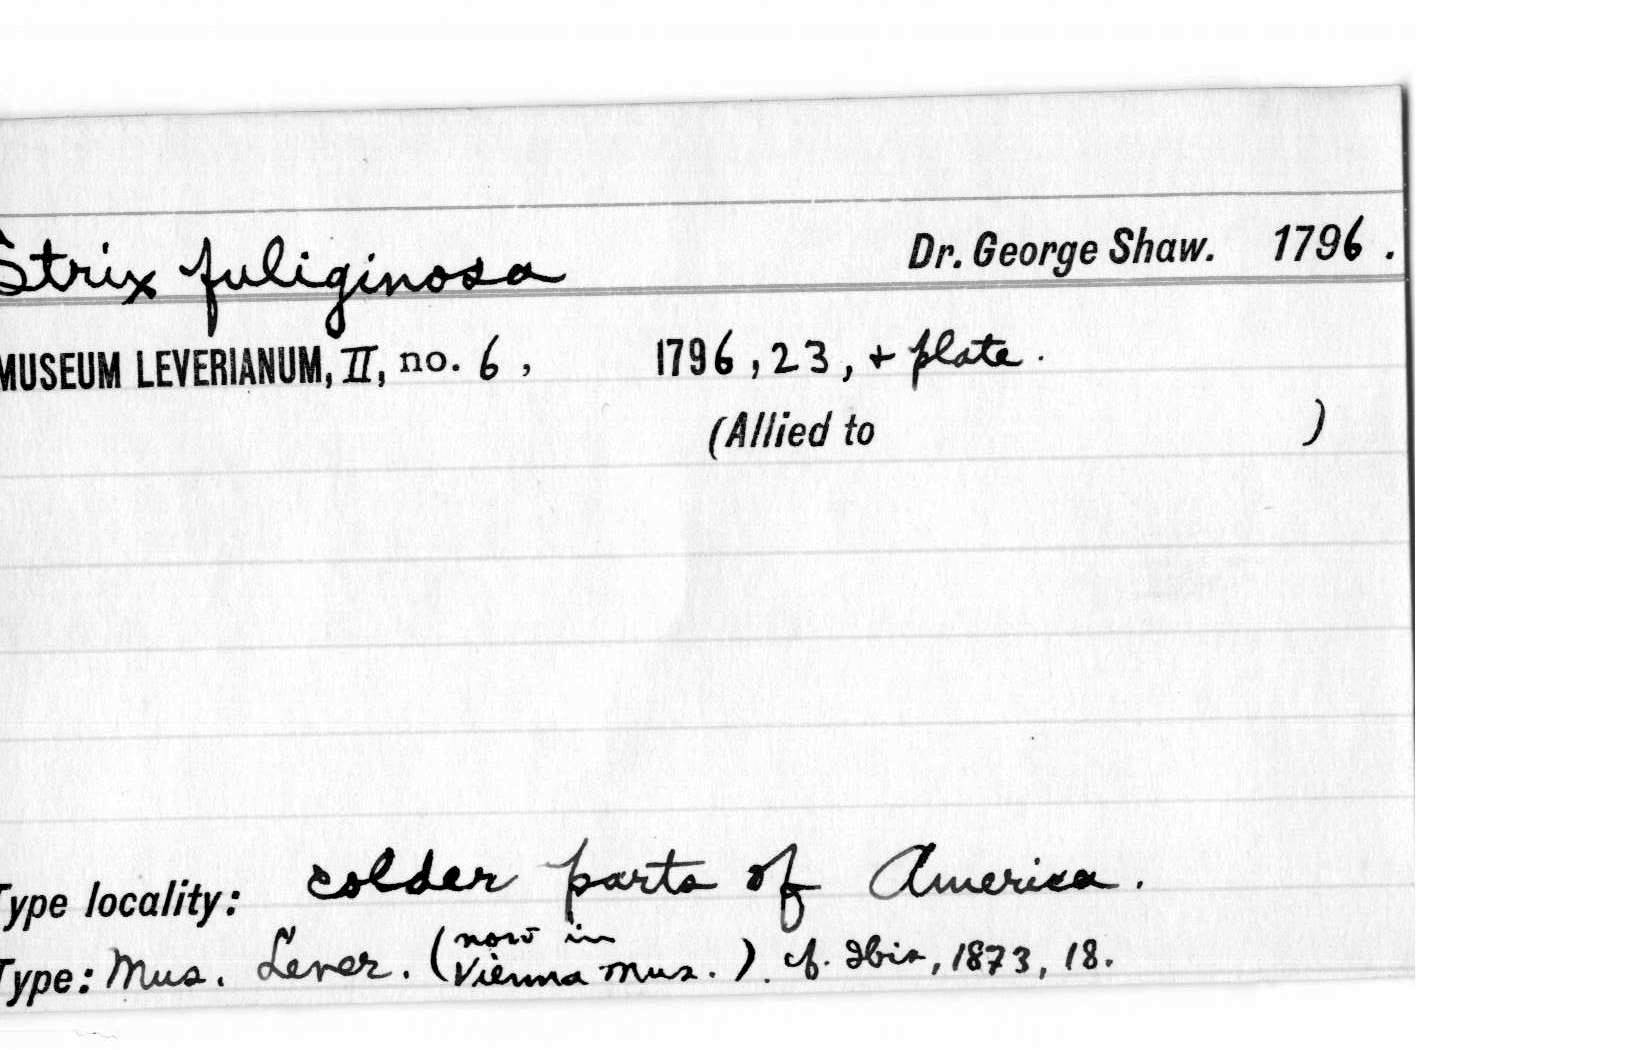 Strix fuliginosa Dr. George Shaw. 1796.
MUSEUM LEVERIANUM, II, no. 6, 1796, 23, + plate.
(Allied to )
Type locality: colder parts of America.
Type: Mus. Lever. (now in Vienna Mus.). cf. Ibis, 1873, 18.